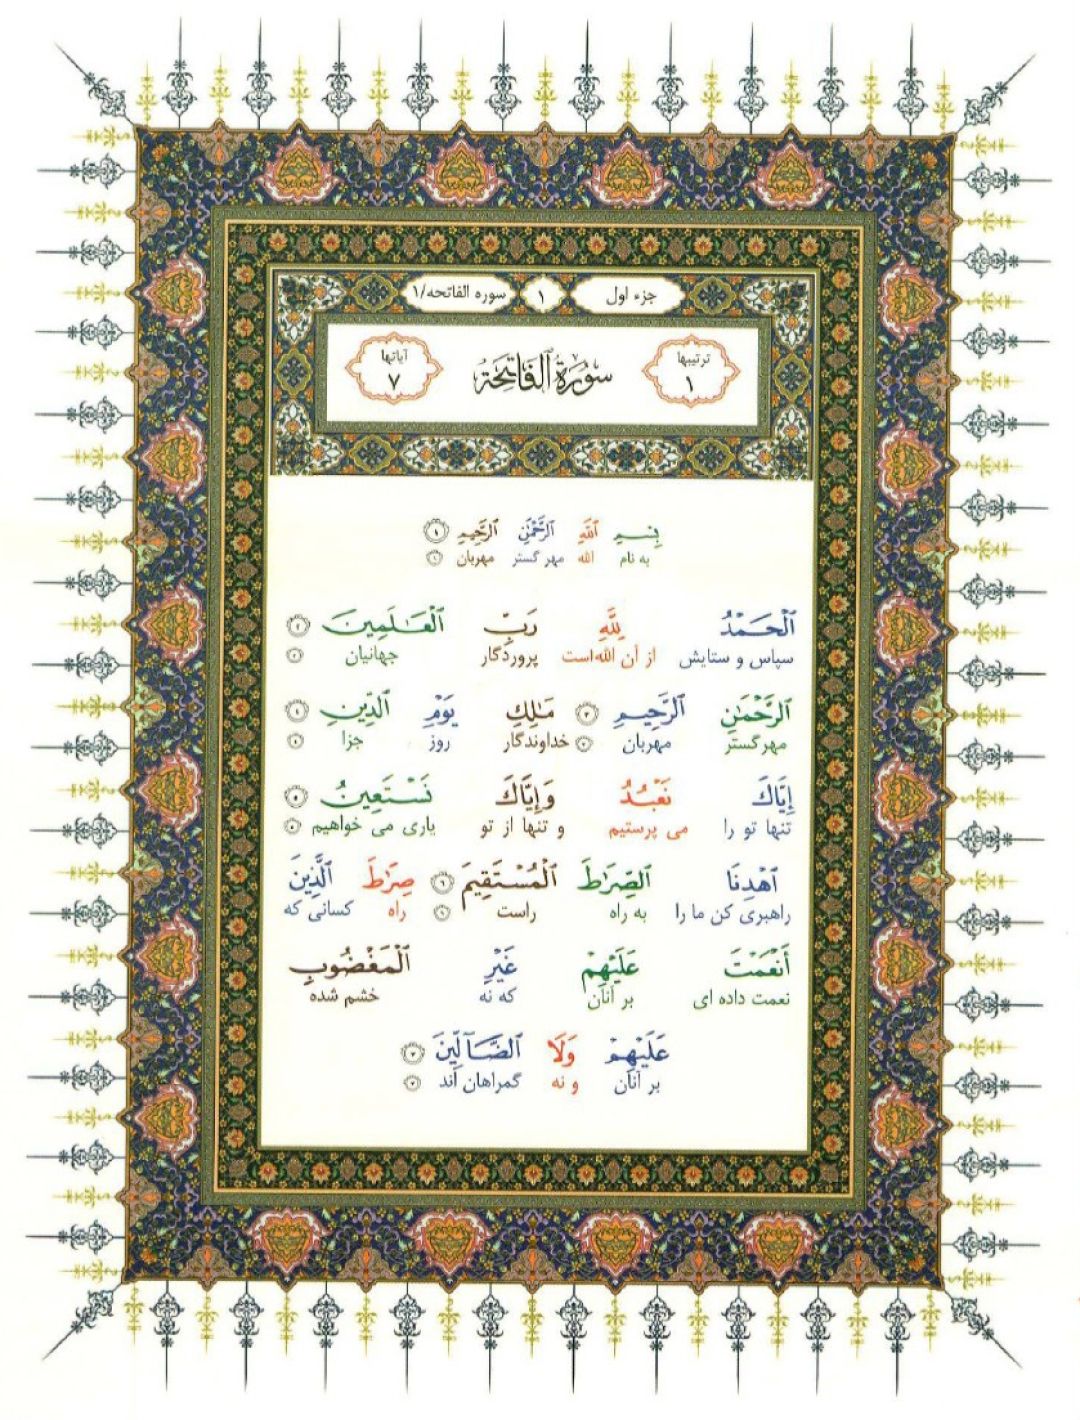 جزء اول ۱ سوره الفاتحه/۱
ترتیبها آیاتها
۱ سُورَةُ ٱلْفَاتِحَةِ ۷
بِسْمِ ٱللَّهِ ٱلرَّحْمَٰنِ ٱلرَّحِيمِ ۱
به نام الله مهر گستر مهربان ۱
ٱلْحَمْدُ لِلَّهِ رَبِّ ٱلْعَٰلَمِينَ ۲
سپاس و ستایش از آن الله است پروردگار جهانیان ۲
ٱلرَّحْمَٰنِ ٱلرَّحِيمِ ۳ مَٰلِكِ يَوْمِ ٱلدِّينِ ٤
مهرگستر مهربان ۳ خداوندگار روز جزا ٤
إِيَّاكَ نَعْبُدُ وَإِيَّاكَ نَسْتَعِينُ ٥
تنها تو را می پرستیم و تنها از تو یاری می خواهیم ٥
ٱهْدِنَا ٱلصِّرَٰطَ ٱلْمُسْتَقِيمَ ٦ صِرَٰطَ ٱلَّذِينَ
راهبری کن ما را به راه راست ٦ راه کسانی که
أَنْعَمْتَ عَلَيْهِمْ غَيْرِ ٱلْمَغْضُوبِ
نعمت داده ای بر آنان که نه خشم شده
عَلَيْهِمْ وَلَا ٱلضَّآلِّينَ ۷
بر آنان و نه گمراهان اند ۷